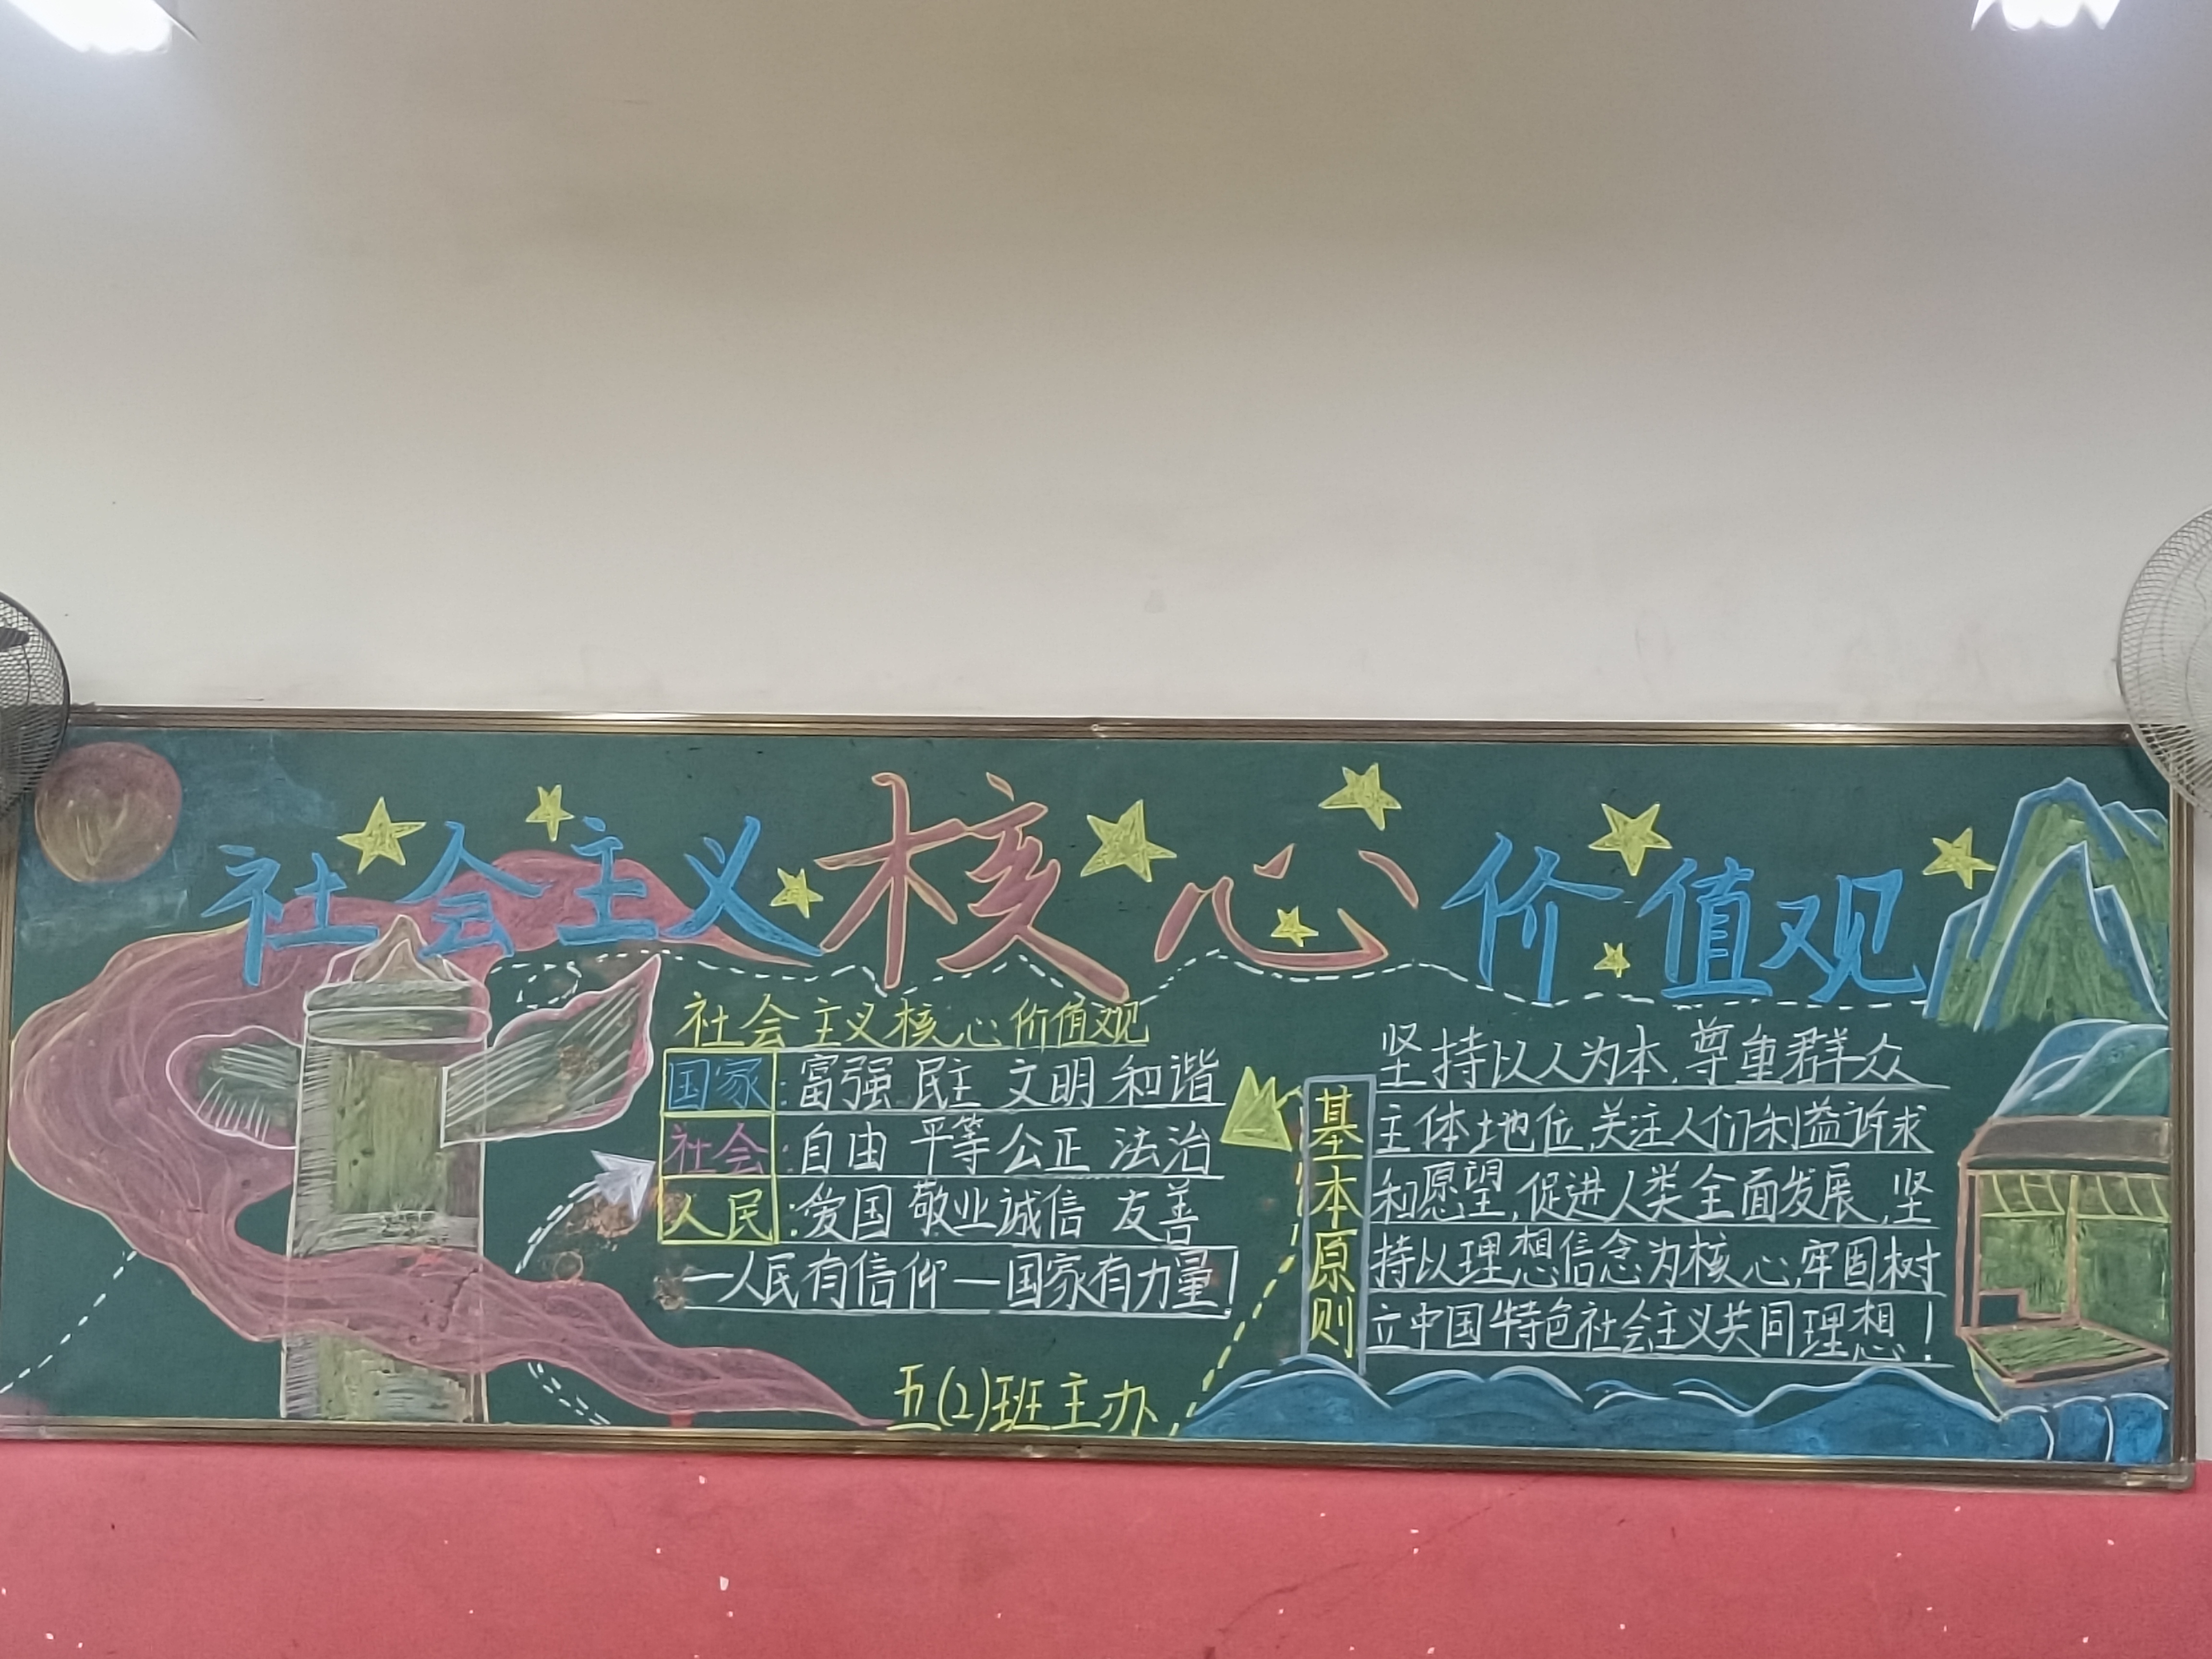 社会主义核心价值观
社会主义核心价值观
国家:富强 民主 文明 和谐
社会:自由 平等 公正 法治
人民:爱国 敬业 诚信 友善
—人民有信仰—国家有力量!
五(2)班主办
基本原则
坚持以人为本,尊重群众
主体地位,关注人们利益诉求
和愿望,促进人类全面发展,坚
持以理想信念为核心,牢固树
立中国特色社会主义共同理想!